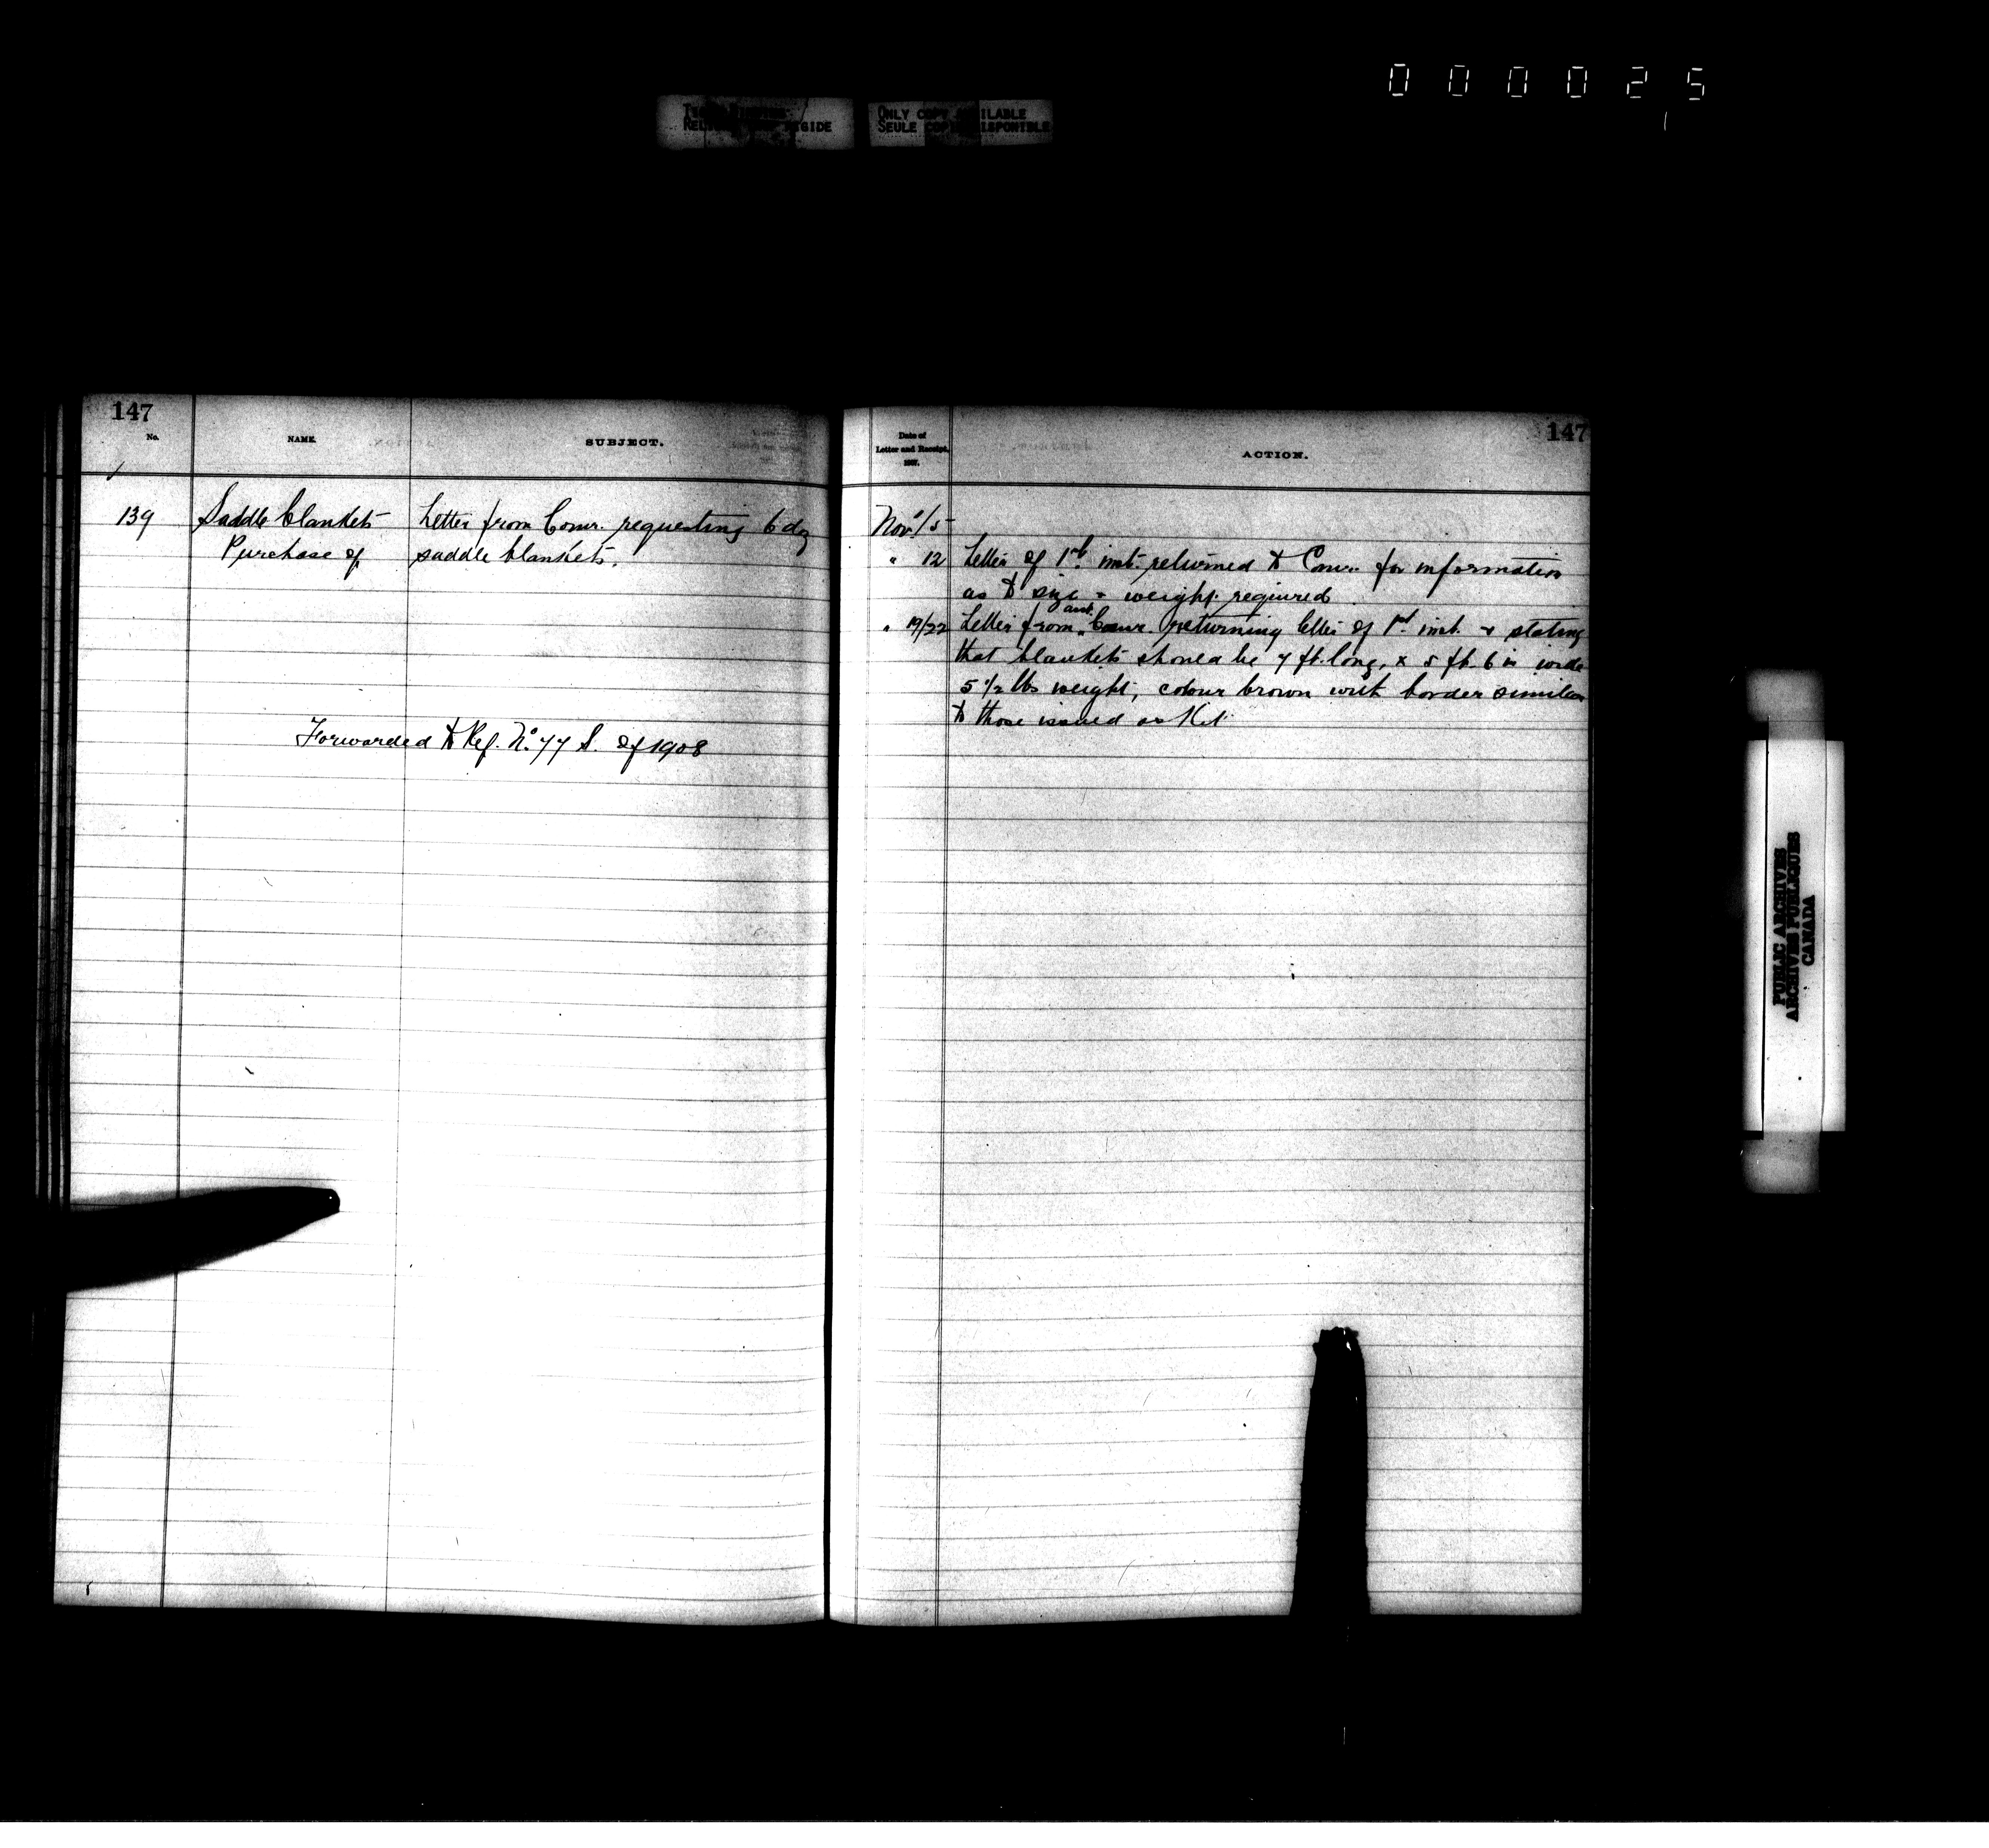 000025
ONLY COPY AVAILABLE
SEULE COPIE DISPONIBLE
147
No.
NAME.
SUBJECT.
139
Saddle blankets
Purchase of
Letter from Comr. requesting 6 doz
saddle blankets.
Forwarded to Ref. No. 77 S. of 1908
147
Date of
Letter and Receipt,
ACTION.
Nov 1/5
" 12 Letter of 1st inst. returned to Comr. for information
as to size & weight required
" 19/22 Letter from asst. Comr. returning letter of 1st inst. & stating
that blankets should be 7 ft. long, x 5 ft. 6 in wide
5 1/2 lbs weight, colour brown with border similar
to those issued as Kit
PUBLIC ARCHIVES
ARCHIVES PUBLIQUES
CANADA